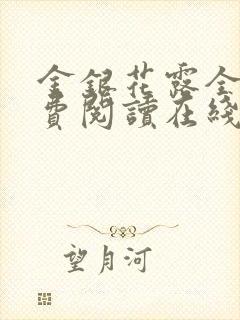 金銀花露全
費閱讀在綫
望月河